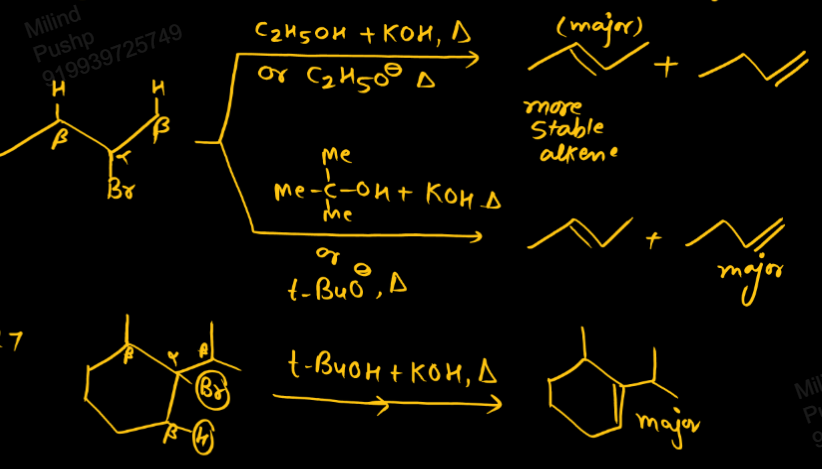 Milind
Pushp
919939725749
C2H5OH + KOH, Δ
or C2H5O⊖ Δ
(major)
+
more
stable
alkene
H
H
β
β
α
Br
Me
Me-C-OH + KOH Δ
Me
or
t-BuO⊖, Δ
+
major
7
β
α
β
Br
β
H
t-BuOH + KOH, Δ
major
Mil
P
9